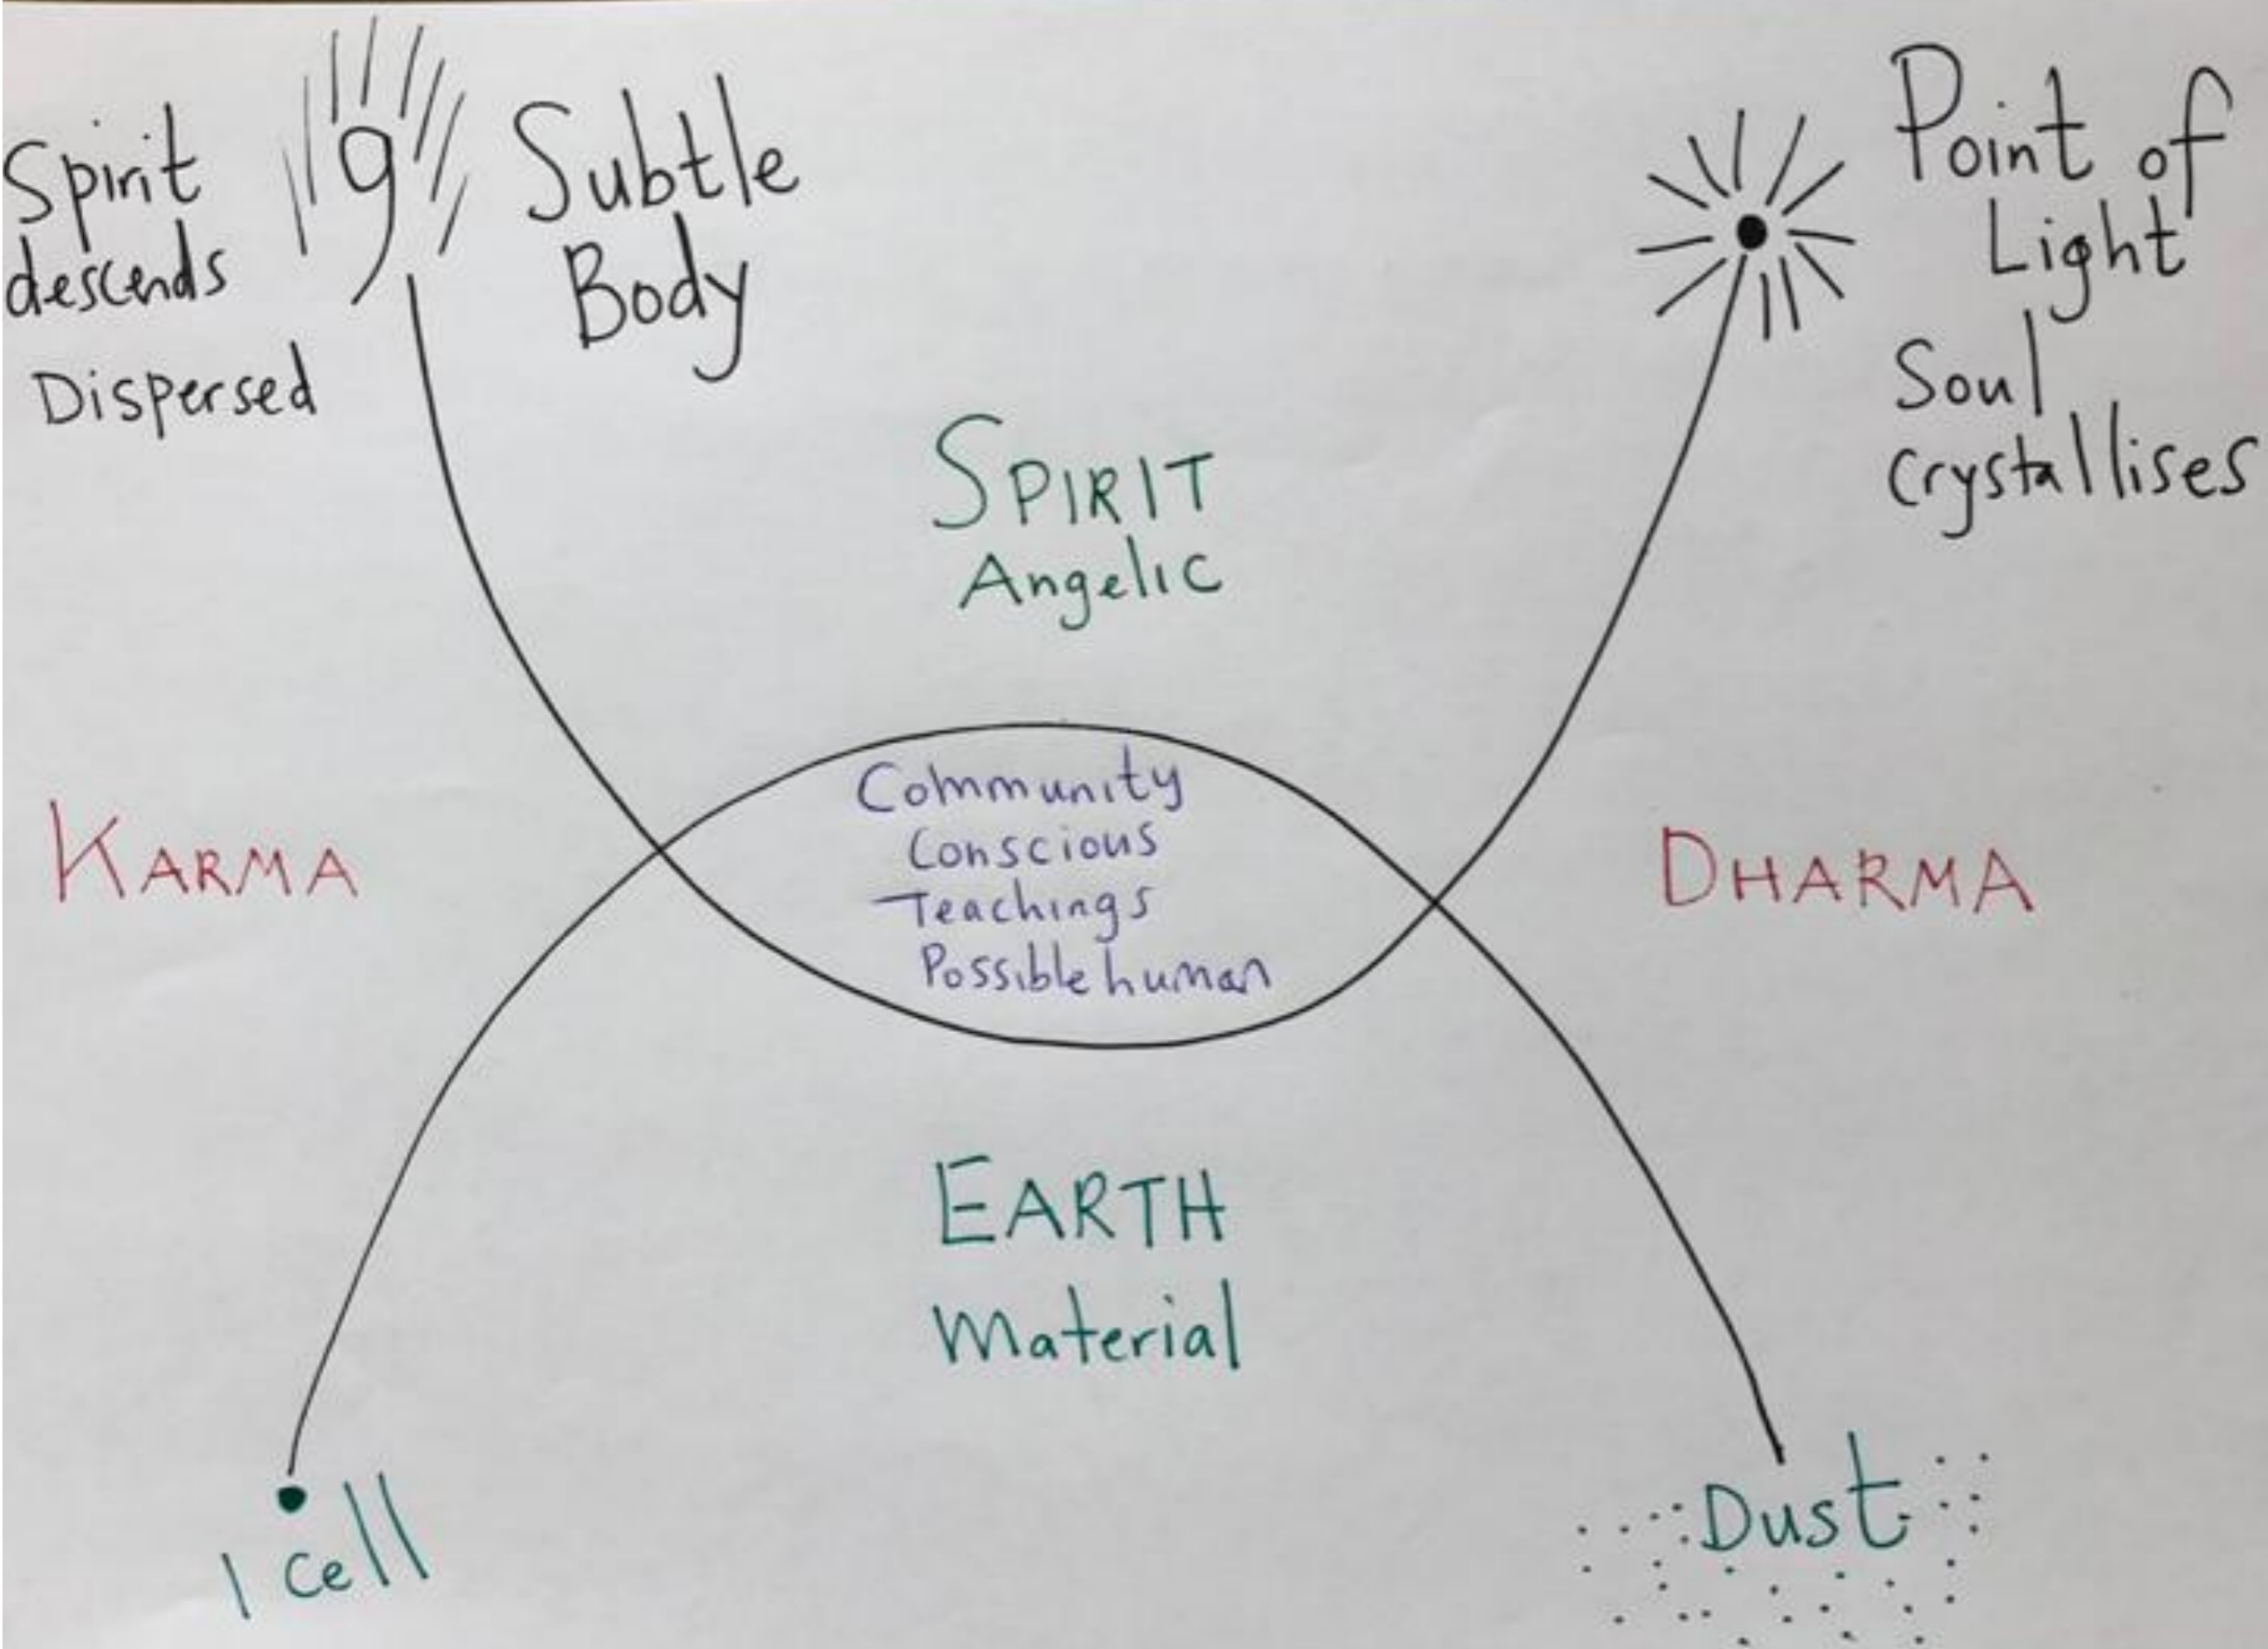 Spirit
descends
Dispersed
9
Subtle
Body
Point of
Light
Soul
crystallises
SPIRIT
Angelic
KARMA
Community
Conscious
Teachings
Possible human
DHARMA
EARTH
Material
1 Cell
Dust